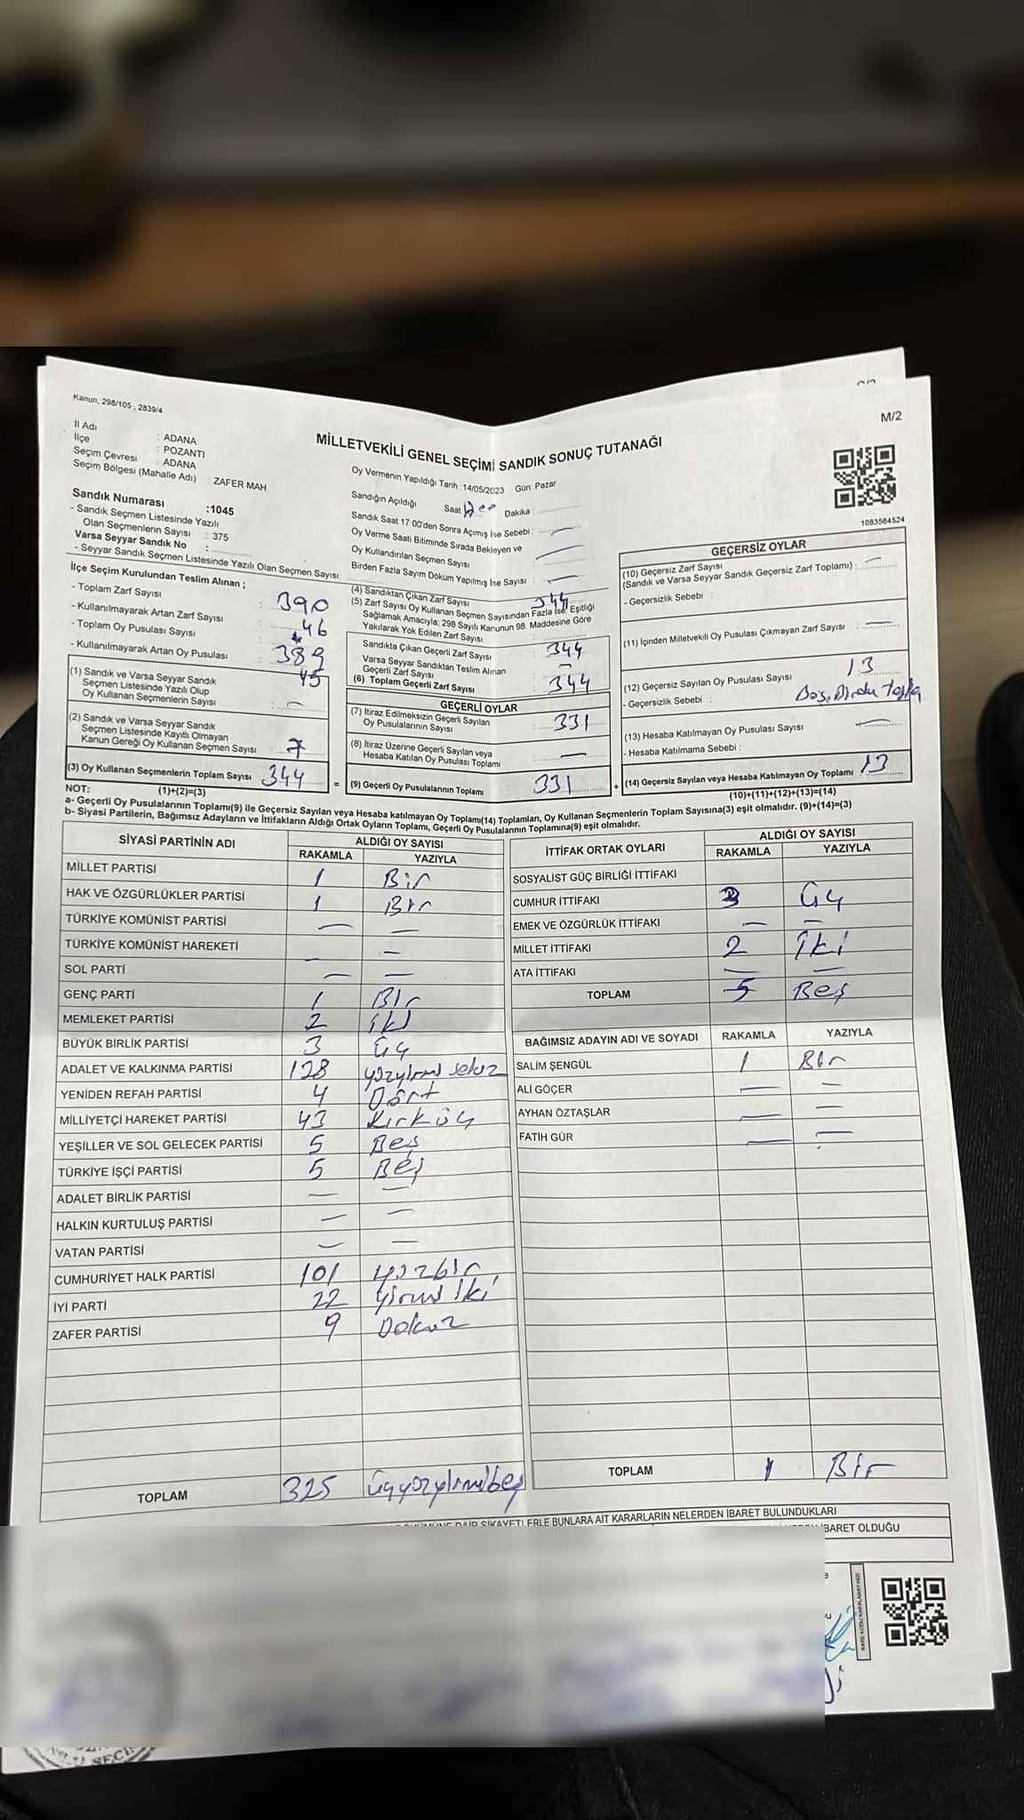 Kanun, 298/105 , 2839/4
M/2
İl Adı : ADANA
İlçe : POZANTI
Seçim Çevresi : ADANA
Seçim Bölgesi (Mahalle Adı) : ZAFER MAH
MİLLETVEKİLİ GENEL SEÇİMİ SANDIK SONUÇ TUTANAĞI
1083564524
Sandık Numarası :1045
- Sandık Seçmen Listesinde Yazılı
Olan Seçmenlerin Sayısı : 375
Varsa Seyyar Sandık No :
- Seyyar Sandık Seçmen Listesinde Yazılı Olan Seçmen Sayısı
İlçe Seçim Kurulundan Teslim Alınan ;
- Toplam Zarf Sayısı : 390
- Kullanılmayarak Artan Zarf Sayısı : 46
- Toplam Oy Pusulası Sayısı : 389
- Kullanılmayarak Artan Oy Pusulası 45
(1) Sandık ve Varsa Seyyar Sandık
Seçmen Listesinde Yazılı Olup
Oy Kullanan Seçmenlerin Sayısı : —
(2) Sandık ve Varsa Seyyar Sandık
Seçmen Listesinde Kayıtlı Olmayan
Kanun Gereği Oy Kullanan Seçmen Sayısı : 7
(3) Oy Kullanan Seçmenlerin Toplam Sayısı 344
(1)+(2)=(3)
Oy Vermenin Yapıldığı Tarih :14/05/2023 Gün: Pazar
Sandığın Açıldığı Saat Dakika :
Sandık Saat 17 00'den Sonra Açımış İse Sebebi : —
Oy Verme Saati Bitiminde Sırada Bekleyen ve
Oy Kullandırılan Seçmen Sayısı : —
Birden Fazla Sayım Döküm Yapılmış İse Sayısı : —
(4) Sandıktan Çıkan Zarf Sayısı 344
(5) Zarf Sayısı Oy Kullanan Seçmen Sayısından Fazla İse; Eşitliği
Sağlamak Amacıyla; 298 Sayılı Kanunun 98. Maddesine Göre
Yakılarak Yok Edilen Zarf Sayısı :
Sandıkta Çıkan Geçerli Zarf Sayısı : 344
Varsa Seyyar Sandıktan Teslim Alınan
Geçerli Zarf Sayısı : —
(6) Toplam Geçerli Zarf Sayısı : 344
GEÇERLİ OYLAR
(7) İtiraz Edilmeksizin Geçerli Sayılan
Oy Pusulalarının Sayısı : 331
(8) İtiraz Üzerine Geçerli Sayılan veya
Hesaba Katılan Oy Pusulası Toplamı : —
= (9) Geçerli Oy Pusulalarının Toplamı 331 +
GEÇERSİZ OYLAR
(10) Geçersiz Zarf Sayısı
(Sandık ve Varsa Seyyar Sandık Geçersiz Zarf Toplamı) : —
- Geçersizlik Sebebi :
(11) İçinden Milletvekili Oy Pusulası Çıkmayan Zarf Sayısı : —
(12) Geçersiz Sayılan Oy Pusulası Sayısı : 13
- Geçersizlik Sebebi :
(13) Hesaba Katılmayan Oy Pusulası Sayısı : —
- Hesaba Katılmama Sebebi :
(14) Geçersiz Sayılan veya Hesaba Katılmayan Oy Toplamı 13
(10)+(11)+(12)+(13)=(14)
NOT:
a- Geçerli Oy Pusulalarının Toplamı(9) ile Geçersiz Sayılan veya Hesaba katılmayan Oy Toplamı(14) Toplamları, Oy Kullanan Seçmenlerin Toplam Sayısına(3) eşit olmalıdır. (9)+(14)=(3)
b- Siyasi Partilerin, Bağımsız Adayların ve İttifakların Aldığı Ortak Oyların Toplamı, Geçerli Oy Pusulalarının Toplamına(9) eşit olmalıdır.
SİYASİ PARTİNİN ADI ALDIĞI OY SAYISI
RAKAMLA YAZIYLA
MİLLET PARTİSİ 1 Bir
HAK VE ÖZGÜRLÜKLER PARTİSİ 1 Bir
TÜRKİYE KOMÜNİST PARTİSİ — —
TÜRKİYE KOMÜNİST HAREKETİ — —
SOL PARTİ — —
GENÇ PARTİ 1 Bir
MEMLEKET PARTİSİ 2 iki
BÜYÜK BİRLİK PARTİSİ 3 üç
ADALET VE KALKINMA PARTİSİ 128 yüzyirmi sekiz
YENİDEN REFAH PARTİSİ 4 Dört
MİLLİYETÇİ HAREKET PARTİSİ 43 Kırküç
YEŞİLLER VE SOL GELECEK PARTİSİ 5 Beş
TÜRKİYE İŞÇİ PARTİSİ 5 Beş
ADALET BİRLİK PARTİSİ — —
HALKIN KURTULUŞ PARTİSİ — —
VATAN PARTİSİ — —
CUMHURİYET HALK PARTİSİ 101 yüzbir
İYİ PARTİ 22 yirmi iki
ZAFER PARTİSİ 9 Dokuz
TOPLAM 325 üçyüzyirmibeş
İTTİFAK ORTAK OYLARI ALDIĞI OY SAYISI
RAKAMLA YAZIYLA
SOSYALİST GÜÇ BİRLİĞİ İTTİFAKI
CUMHUR İTTİFAKI 3 üç
EMEK VE ÖZGÜRLÜK İTTİFAKI — —
MİLLET İTTİFAKI 2 iki
ATA İTTİFAKI — —
TOPLAM 5 Beş
BAĞIMSIZ ADAYIN ADI VE SOYADI RAKAMLA YAZIYLA
SALİM ŞENGÜL 1 Bir
ALİ GÖÇER — —
AYHAN ÖZTAŞLAR — —
FATİH GÜR — —
TOPLAM 1 Bir
DAİR ŞİKAYETLERLE BUNLARA AİT KARARLARIN NELERDEN İBARET BULUNDUKLARI
İBARET OLDUĞU